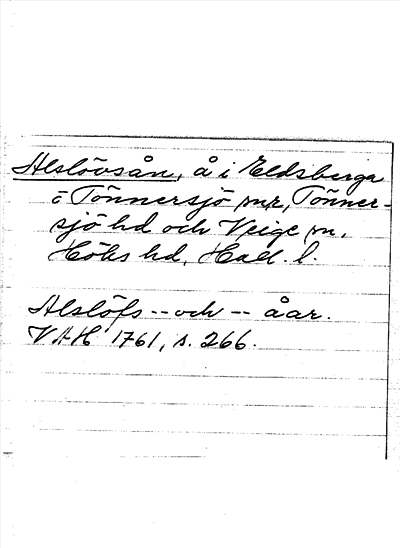 Alslövsån, å i Eldsberga
o Tönnersjö snr, Tönner-
sjö hd och Veige sn.
Höks hd, Hall. l.
Alslöfs -- och -- åar.
VAH 1761, s. 266.